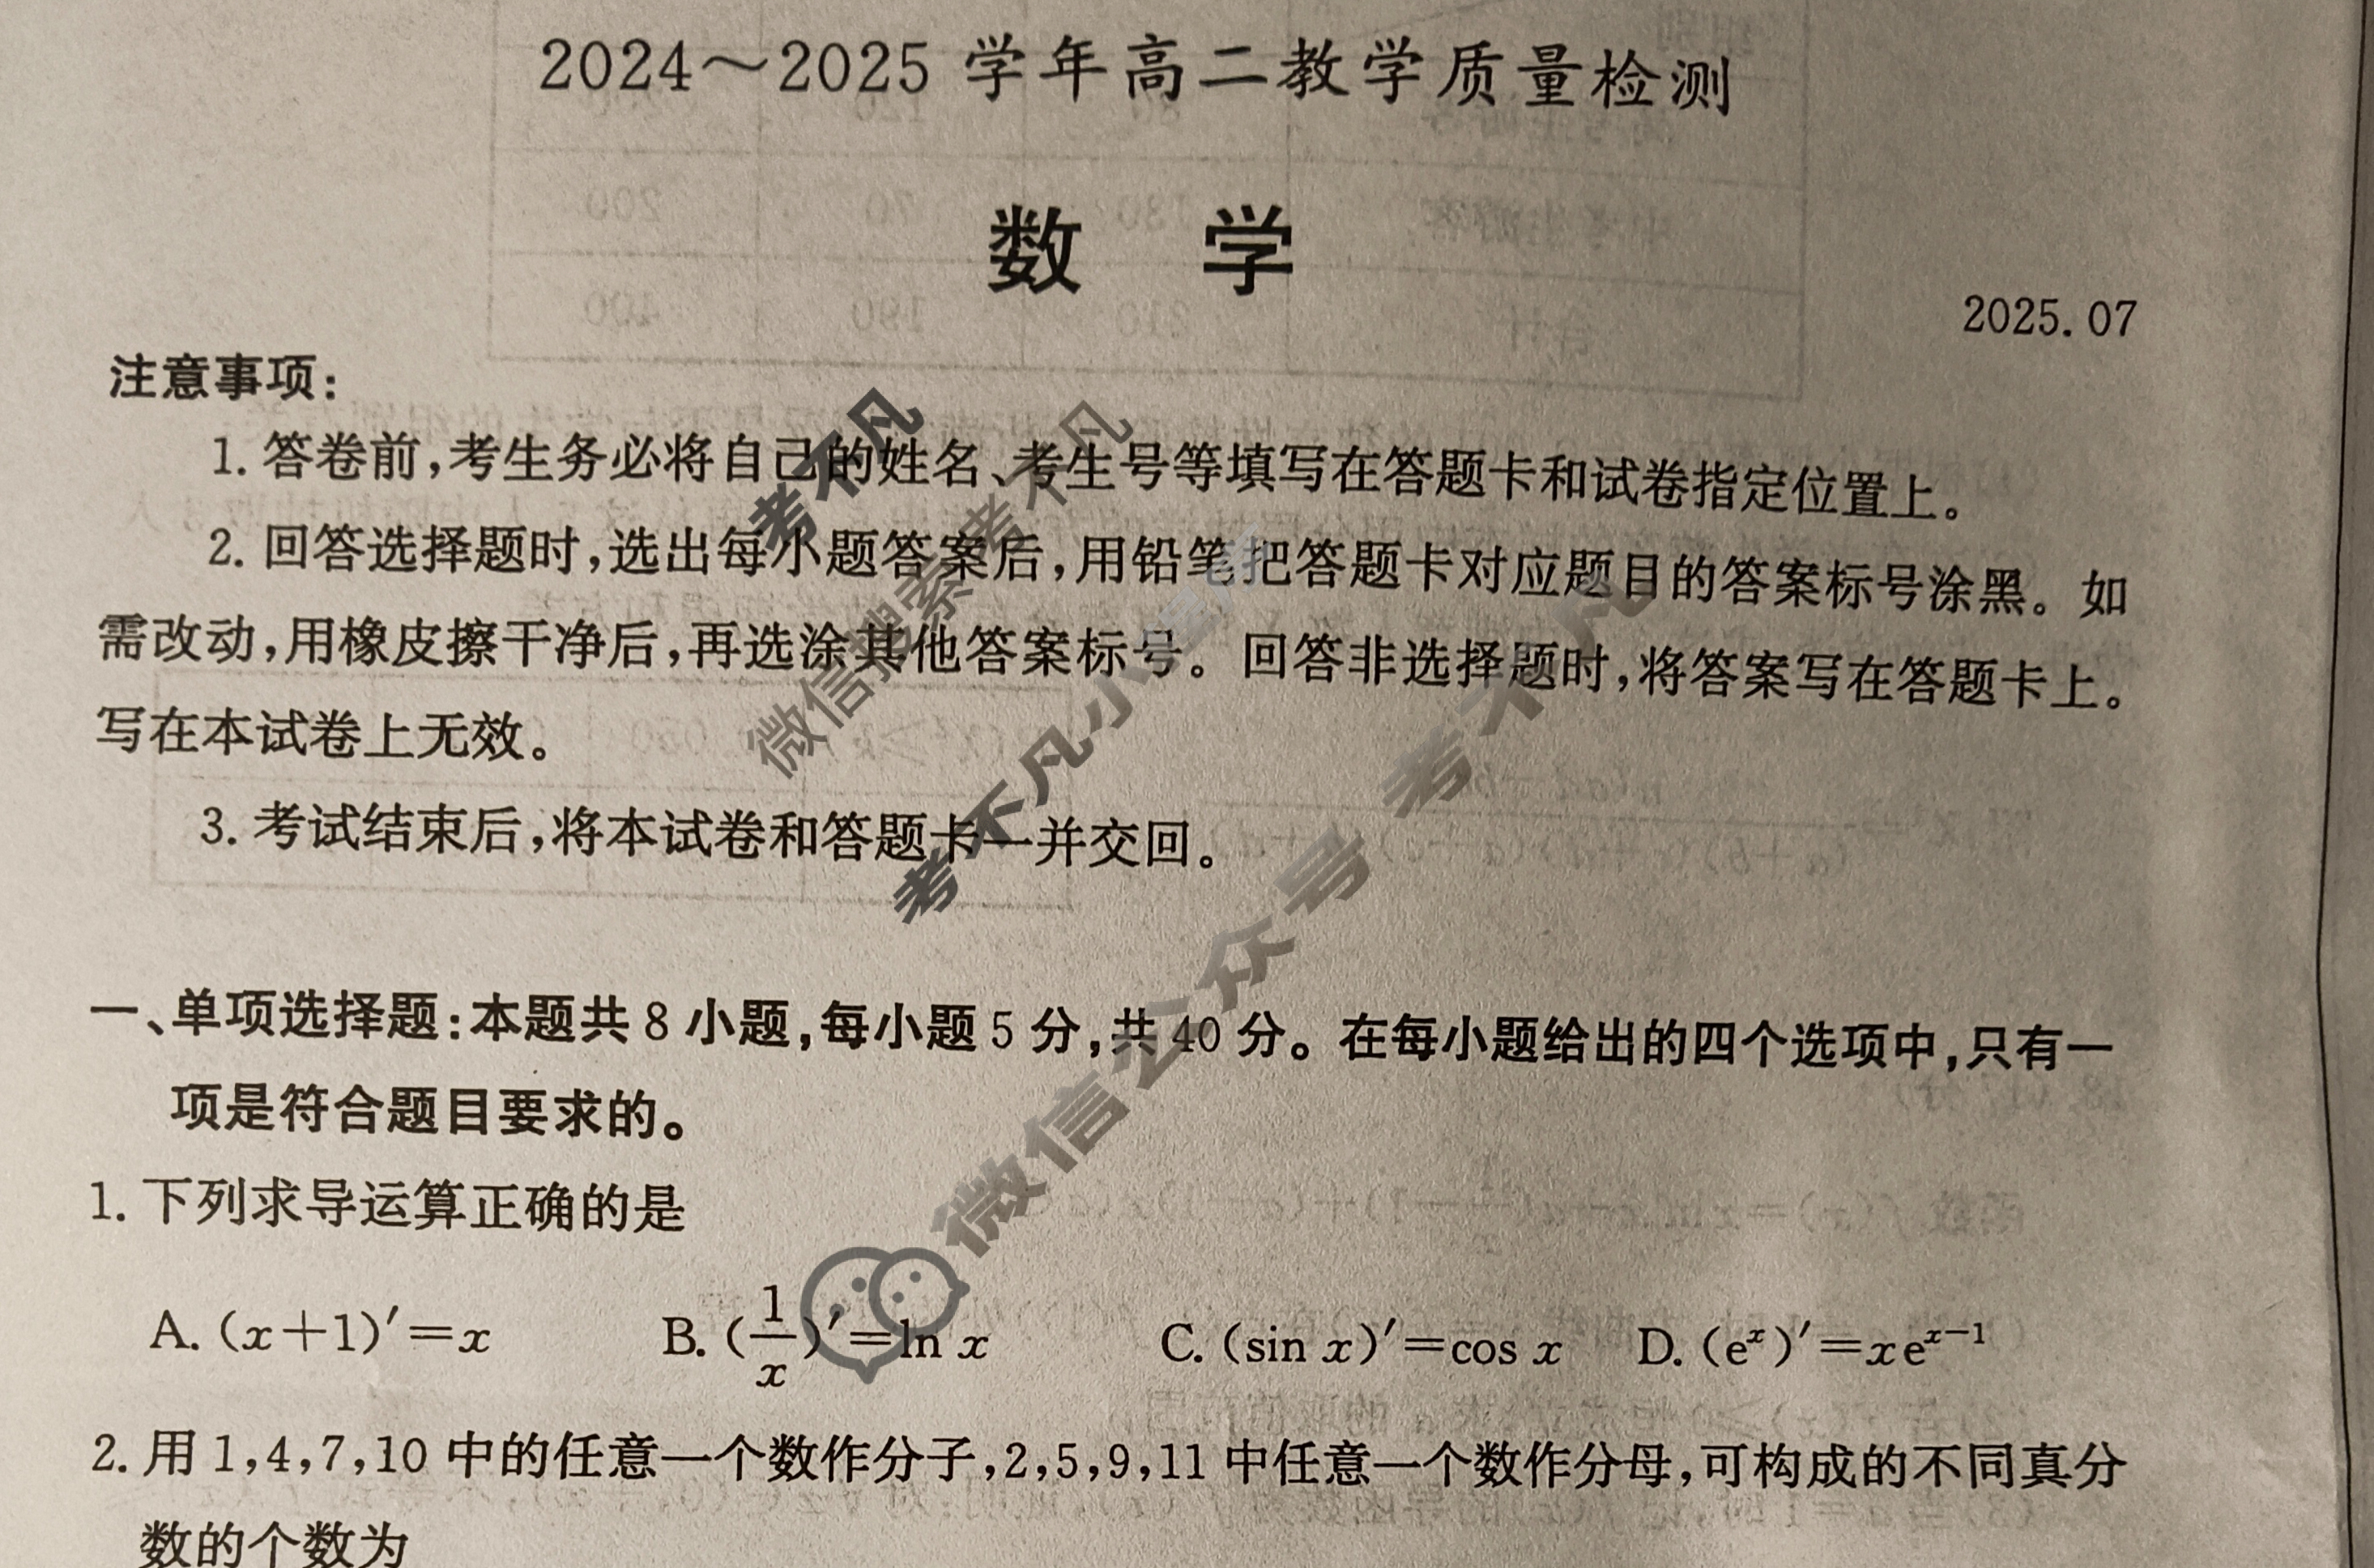 2024～2025 学年高二教学质量检测
数 学
2025.07
注意事项：
1. 答卷前，考生务必将自己的姓名、考生号等填写在答题卡和试卷指定位置上。
2. 回答选择题时，选出每小题答案后，用铅笔把答题卡对应题目的答案标号涂黑。如
需改动，用橡皮擦干净后，再选涂其他答案标号。回答非选择题时，将答案写在答题卡上。
写在本试卷上无效。
3. 考试结束后，将本试卷和答题卡一并交回。
一、单项选择题：本题共 8 小题，每小题 5 分，共 40 分。在每小题给出的四个选项中，只有一
项是符合题目要求的。
1. 下列求导运算正确的是
A. (x+1)′=x B. (1/x)′=ln x C. (sin x)′=cos x D. (eˣ)′=xeˣ⁻¹
2. 用 1,4,7,10 中的任意一个数作分子,2,5,9,11 中任意一个数作分母,可构成的不同真分
数的个数为
考不凡
微信搜索考不凡
考不凡小
微信公众号 考不凡